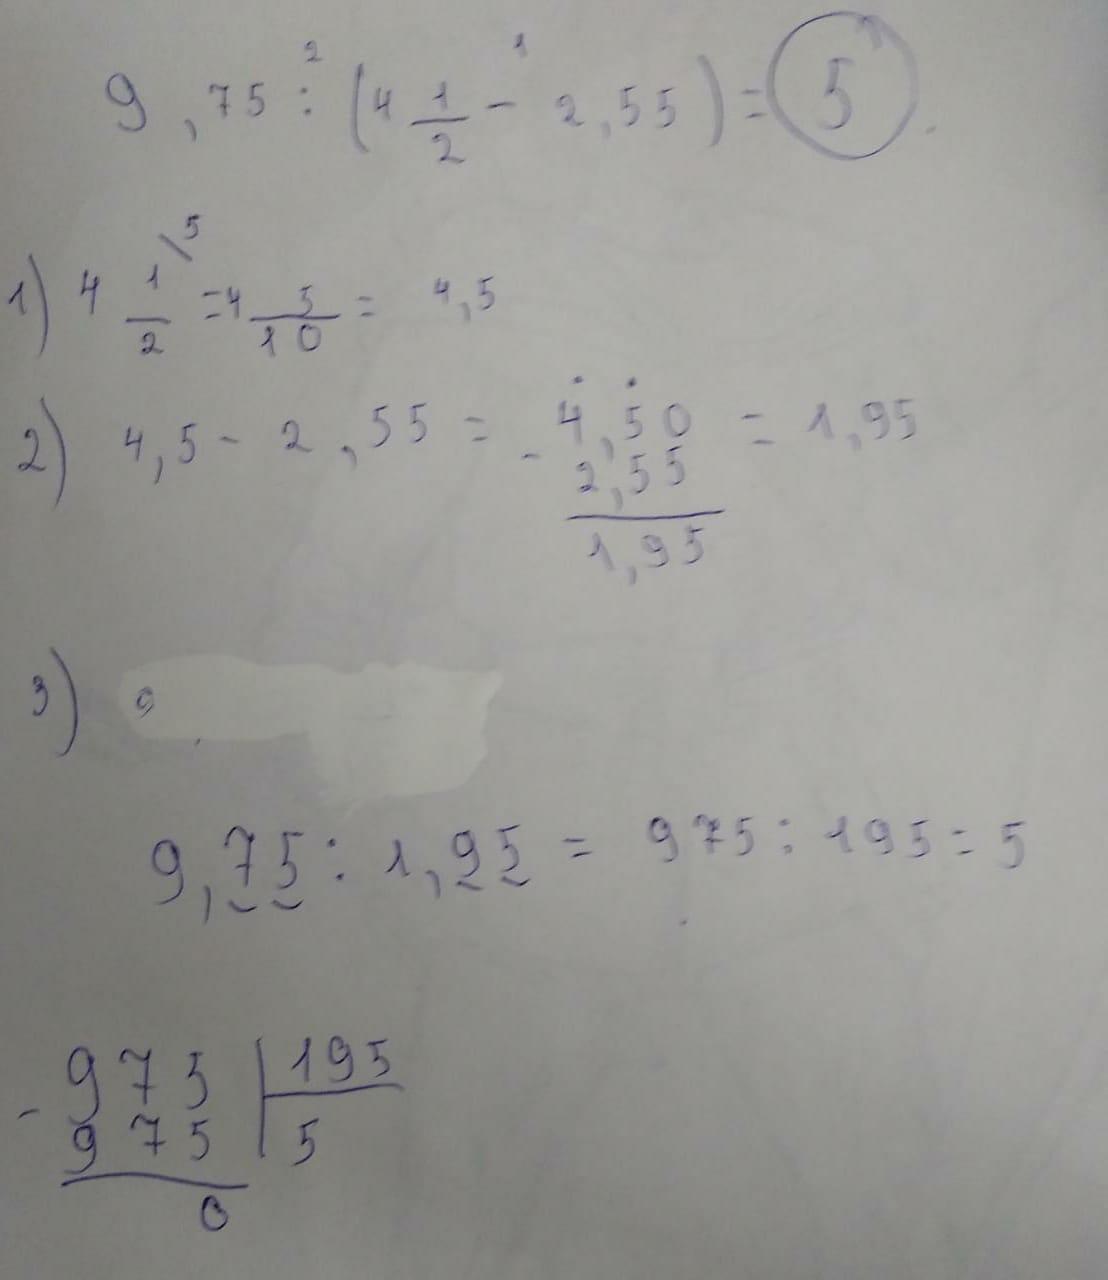 9,75 :² (4 1/2 -¹ 2,55) = 5
1) 4 1/2 \5 = 4 5/10 = 4,5
2) 4,5 - 2,55 = - 4,50 = 1,95
2,55
1,95
3) 9
9,75 : 1,95 = 975 : 195 = 5
- 975 | 195
975 | 5
0